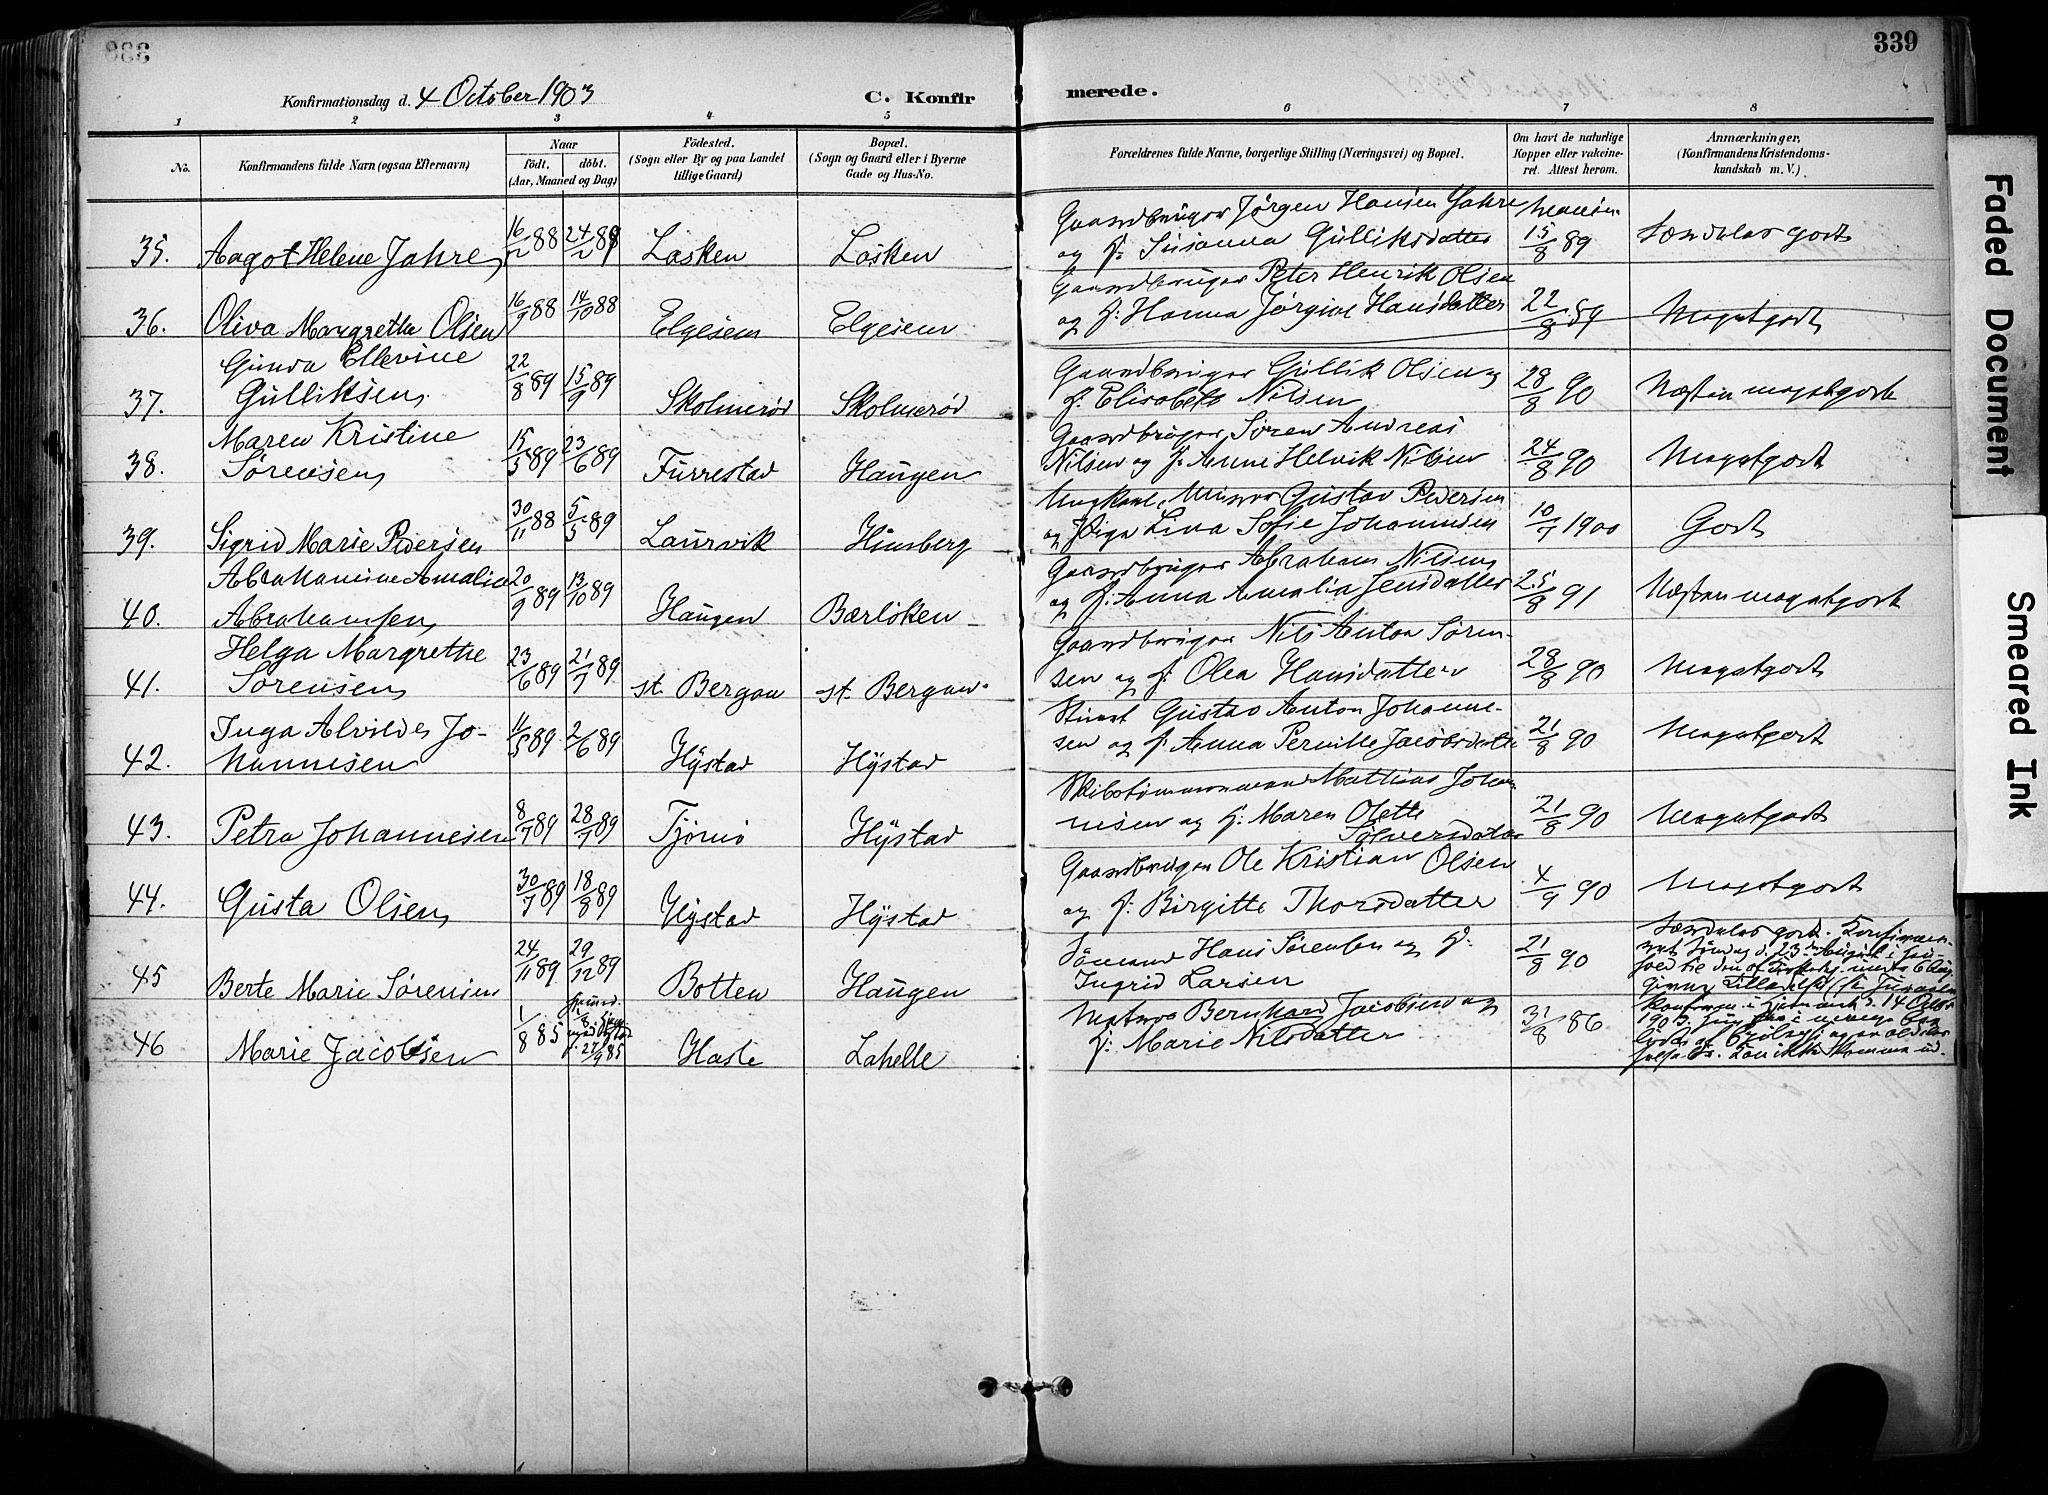 339
Konfirmationsdag d. 4 October 1903
C. Konfirmerede.
1 2 3 4 5 6 7 8
No. Konfirmandens fulde Navn (ogsaa Efternavn) Naar født. døbt. (Aar, Maaned og Dag) Fødested. (Sogn eller By og paa Landet tillige Gaard) Bopæl. (Sogn og Gaard eller i Byerne Gade og Hus-No. Forældrenes fulde Navne, borgerlige Stilling (Næringsvei) og Bopæl. Om havt de naturlige Kopper eller vakcineret. Attest herom. Anmærkninger, (Konfirmandens Kristendomskundskab m. V.)
35. Aagot Helene Jahre 16/2 88 24/2 89 Løsken Løsken Gaardbruger Jørgen Hansen Jahre og f: Susanna Gulliksdatter 15/8 89 Særdeles godt
36. Oliva Margrethe Olsen 16/9 88 14/10 88 Elgesem Elgesem Gaardbruger Peter Henrik Olsen og f: Hanna Jørgine Hansdatter 22/8 89 Meget godt
37. Gunda Ellevine Gulliksen 22/8 89 15/9 89 Skolmerød Skolmerød Gaardbruger Gullik Olsen og f. Elisabeth Nilsen 28/8 90 Næsten meget godt
38. Maren Kristine Sørensen 15/5 89 23/6 89 Furrestad Haugen Gaardbruger Søren Andreas Nilsen og f: Anne Helvik Nilsen 24/8 90 Meget godt
39. Sigrid Marie Pedersen 30/11 88 5/5 89 Laurvik Himberg Ungkarl, Murer Gustav Pedersen og Pige Lina Sofie Johannesen 10/7 1900 Godt
40. Abrahamine Amalie Abrahamsen 20/9 89 13/10 89 Haugen Bærløken Gaardbruger Abraham Nilsen og f: Anna Amalia Jensdatter 25/8 91 Næsten meget godt
41. Helga Margrethe Sørensen 23/6 89 21/7 89 st. Bergan st. Bergan. Gaardbruger Nils Anton Sørensen og f: Olea Hansdatter 28/8 90 Meget godt
42. Inga Alvilde Johannesen 11/5 89 2/6 89 Hystad Hystad Stuert Gustav Anton Johannesen og f: Anna Pernille Jacobsdatter 21/8 90 Meget godt
43. Petra Johannesen 8/7 89 28/7 89 Tjømø Hystad Skibstømmermand Mathias Johannesen og f: Maren Olette Sølversdatter 21/8 90 Meget godt
44. Gusta Olsen 30/7 89 18/8 89 Hystad Hystad Gaardbruger Ole Kristian Olsen og f: Birgitte Thorsdatter 4/9 90 Meget godt
45 Berte Marie Sørensen 24/11 89 29/12 89 Botten Haugen Sømand Hans Sørensen og f: Ingrid Larsen 21/8 90 Særdeles godt.
46 Marie Jacobsen 1/8 85 27/9 85 Hasle Lahelle Matros Bernhard Jacobsen og f: Marie Nilsdatter 31/8 86
Faded Document
Smeared Ink